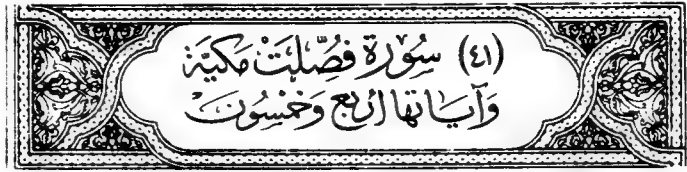 (٤١) سُورَة فُصِّلَتْ مَكيَّة
وَآيَاتها أربَع وَخَمْسُونَ